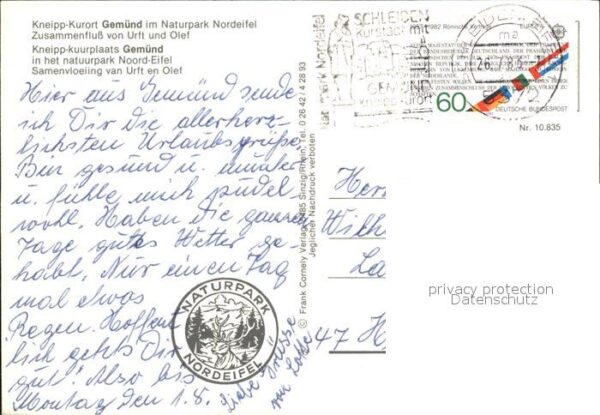 Kneipp-Kurort Gemünd im Naturpark Nordeifel
Zusammenfluß von Urft und Olef
Kneipp-kuurplaats Gemünd
in het natuurpark Noord-Eifel
Samenvloeiing van Urft en Olef
Hier aus Gemünd sende
ich Dir die allerherz-
lichsten Urlaubsgrüße.
Bin gesund u. munter
u. fühle mich pudel-
wohl. Haben die ganzen
Tage gutes Wetter ge-
habt. Nur einen Tag
mal etwas
Regen. Hoffent
lich geht's Dir
gut. Also bis
Montag den 1.8.
Liebe Grüsse
von Lotte
NATURPARK
NORDEIFEL
© Frank Cornely Verlag, 5485 Sinzig/Rhein, Tel. 0 26 42 / 4 28 93
Jeglicher Nachdruck verboten
Naturpark Nordeifel
SCHLEIDEN
Kurstadt mit
GEMÜND
Kneippkurort
60
DEUTSCHE BUNDESPOST
Nr. 10.835
Herr
Wilh
La
47 H
privacy protection
Datenschutz